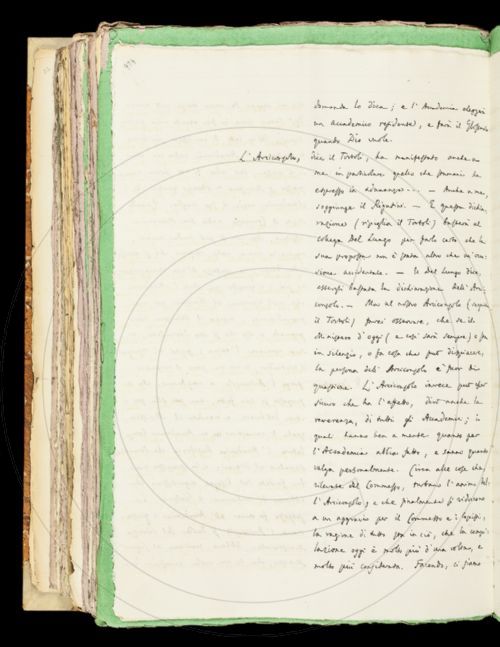 domanda lo dica; e l'Accademia elegga
un accademico residente, e farà il Glossario
quando Dio vuole.
L'Arciconsolo, dice il Tortoli, ha manifestato anche a
me in particolare quello che
espresso in adunanza... — Anche a me,
soggiunge il Rigutini. — E questa dichia-
razione (ripiglia il Tortoli) basterà al
collega Del Lungo per farlo certo che la
sua proposta non è stata altro che
accidentale. — Il Del Lungo dice
essergli bastata la dichiarazione dell'Arci-
consolo. — Ma al nostro Arciconsolo
il Tortoli) osservare, che se il
d'oggi (e così sarà sempre)
in silenzio, o fa cosa che può dispiacere,
la persona dell'Arciconsolo è fuor di
questione. L'Arciconsolo invece può star
sicuro che ha l'affetto, dirò anche la
reverenza, di tutti gli Accademici; i
quali hanno ben a mente quanto per
l'Accademia abbia fatto, e sanno quanto
valga personalmente. Circa alle cose che,
rilevate dal Commesso, l'animo del-
l'Arciconsolo, e che finalmente si riducono
a un aggravio per il Commesso e i
la ragione di tutto sta in ciò, che la compi-
lazione oggi è molto più d'una volta, e
molto più Facendo, ci siamo